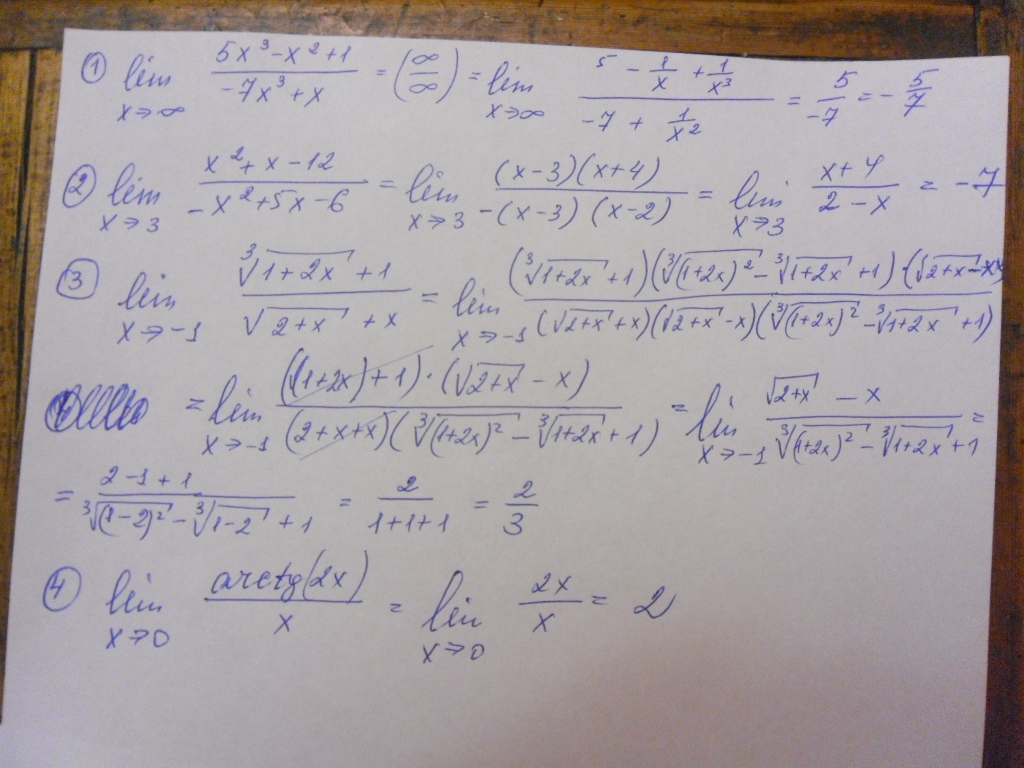 ① lim x→∞ (5x³ - x² + 1)/(-7x³ + x) = (∞/∞) = lim x→∞ (5 - 1/x + 1/x³)/(-7 + 1/x²) = 5/-7 = -5/7
② lim x→3 (x² + x - 12)/(-x² + 5x - 6) = lim x→3 (x-3)(x+4)/(-(x-3)(x-2)) = lim x→3 (x+4)/(2-x) = -7
③ lim x→-1 (∛(1+2x) + 1)/(√(2+x) + x) = lim x→-1 (∛(1+2x) + 1)(∛(1+2x)² - ∛(1+2x) + 1)·(√(2+x) - x)/((√(2+x) + x)(√(2+x) - x)(∛(1+2x)² - ∛(1+2x) + 1))
= lim x→-1 ((1+2x)+1)·(√(2+x) - x)/((2+x+x)(∛(1+2x)² - ∛(1+2x) + 1)) = lim x→-1 (√(2+x) - x)/(∛(1+2x)² - ∛(1+2x) + 1) =
= (2-1+1)/(∛(1-2)² - ∛(1-2) + 1) = 2/(1+1+1) = 2/3
④ lim x→0 arctg(2x)/x = lim x→0 2x/x = 2